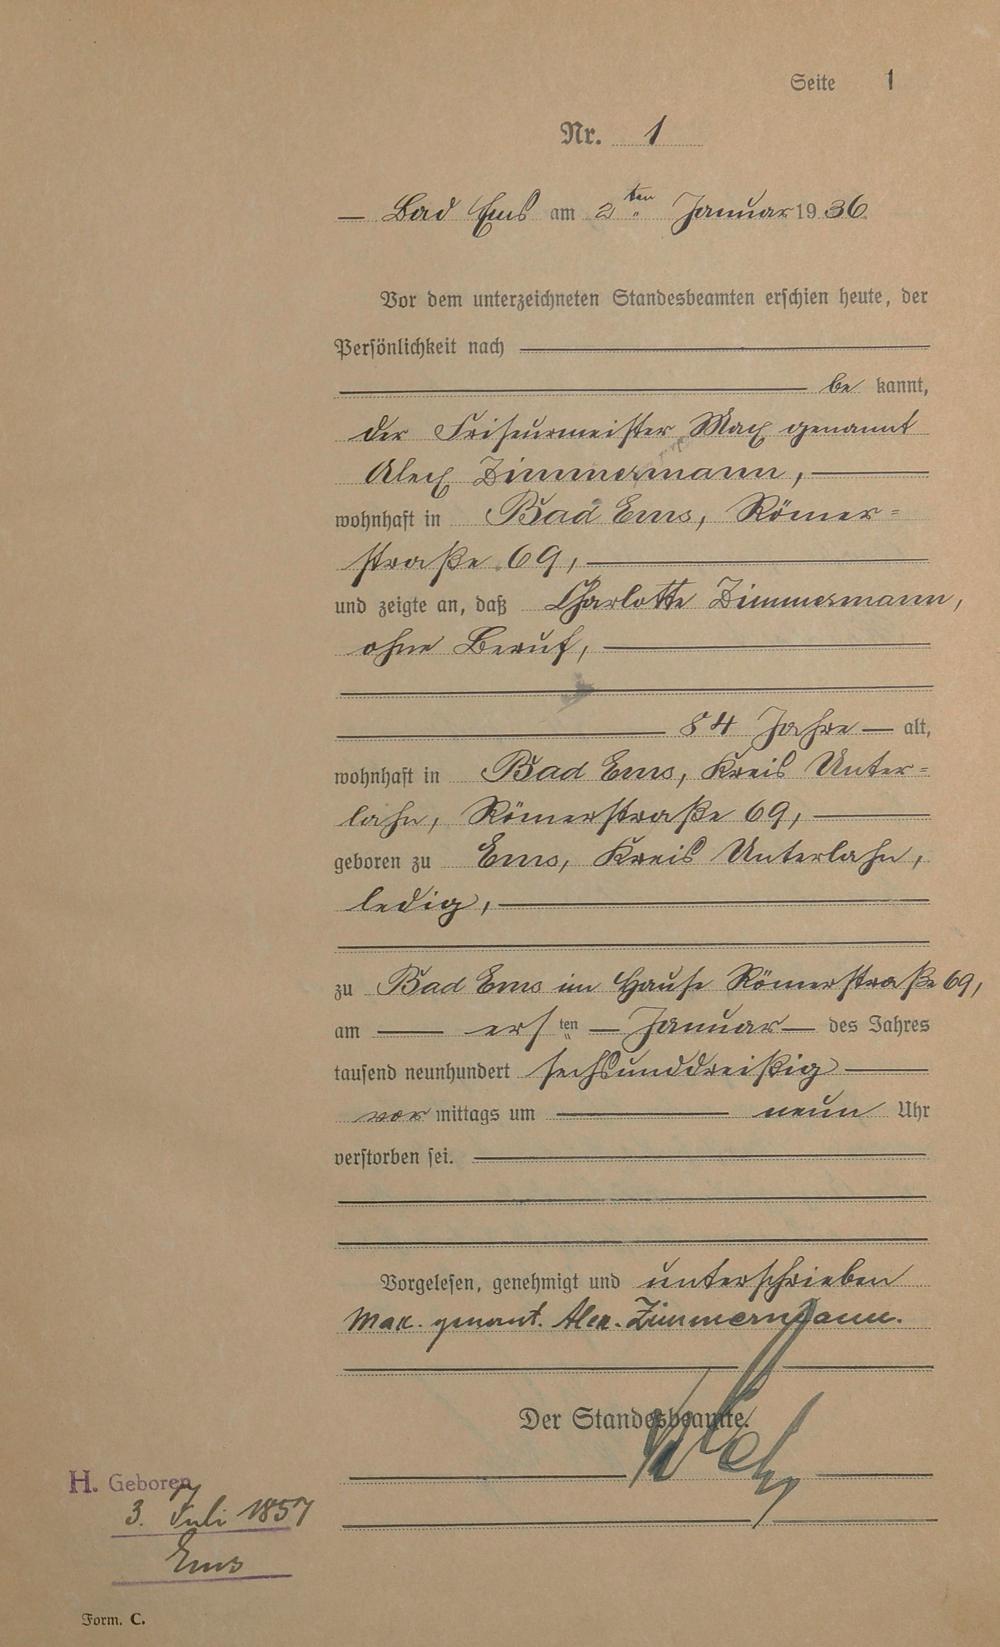 Seite 1
Nr. 1
— Bad Ems am 2ten Januar 1936
Vor dem unterzeichneten Standesbeamten erschien heute, der
Persönlichkeit nach
be kannt,
der Friseurmeister Max genannt
Alex Zimmermann,
wohnhaft in Bad Ems, Römer=
straße 69,
und zeigte an, daß Charlotte Zimmermann,
ohne Beruf,
84 Jahre — alt,
wohnhaft in Bad Ems, Kreis Unter=
lahn, Römerstraße 69,
geboren zu Ems, Kreis Unterlahn,
ledig,
zu Bad Ems im Hause Römerstraße 69,
am — ersten — Januar — des Jahres
tausend neunhundert sechsunddreißig
vor mittags um — neun Uhr
verstorben sei.
Vorgelesen, genehmigt und unterschrieben
Max. genannt. Alex. Zimmermann.
Der Standesbeamte.
H. Geboren
3. Juli 1851
Ems
Form. C.